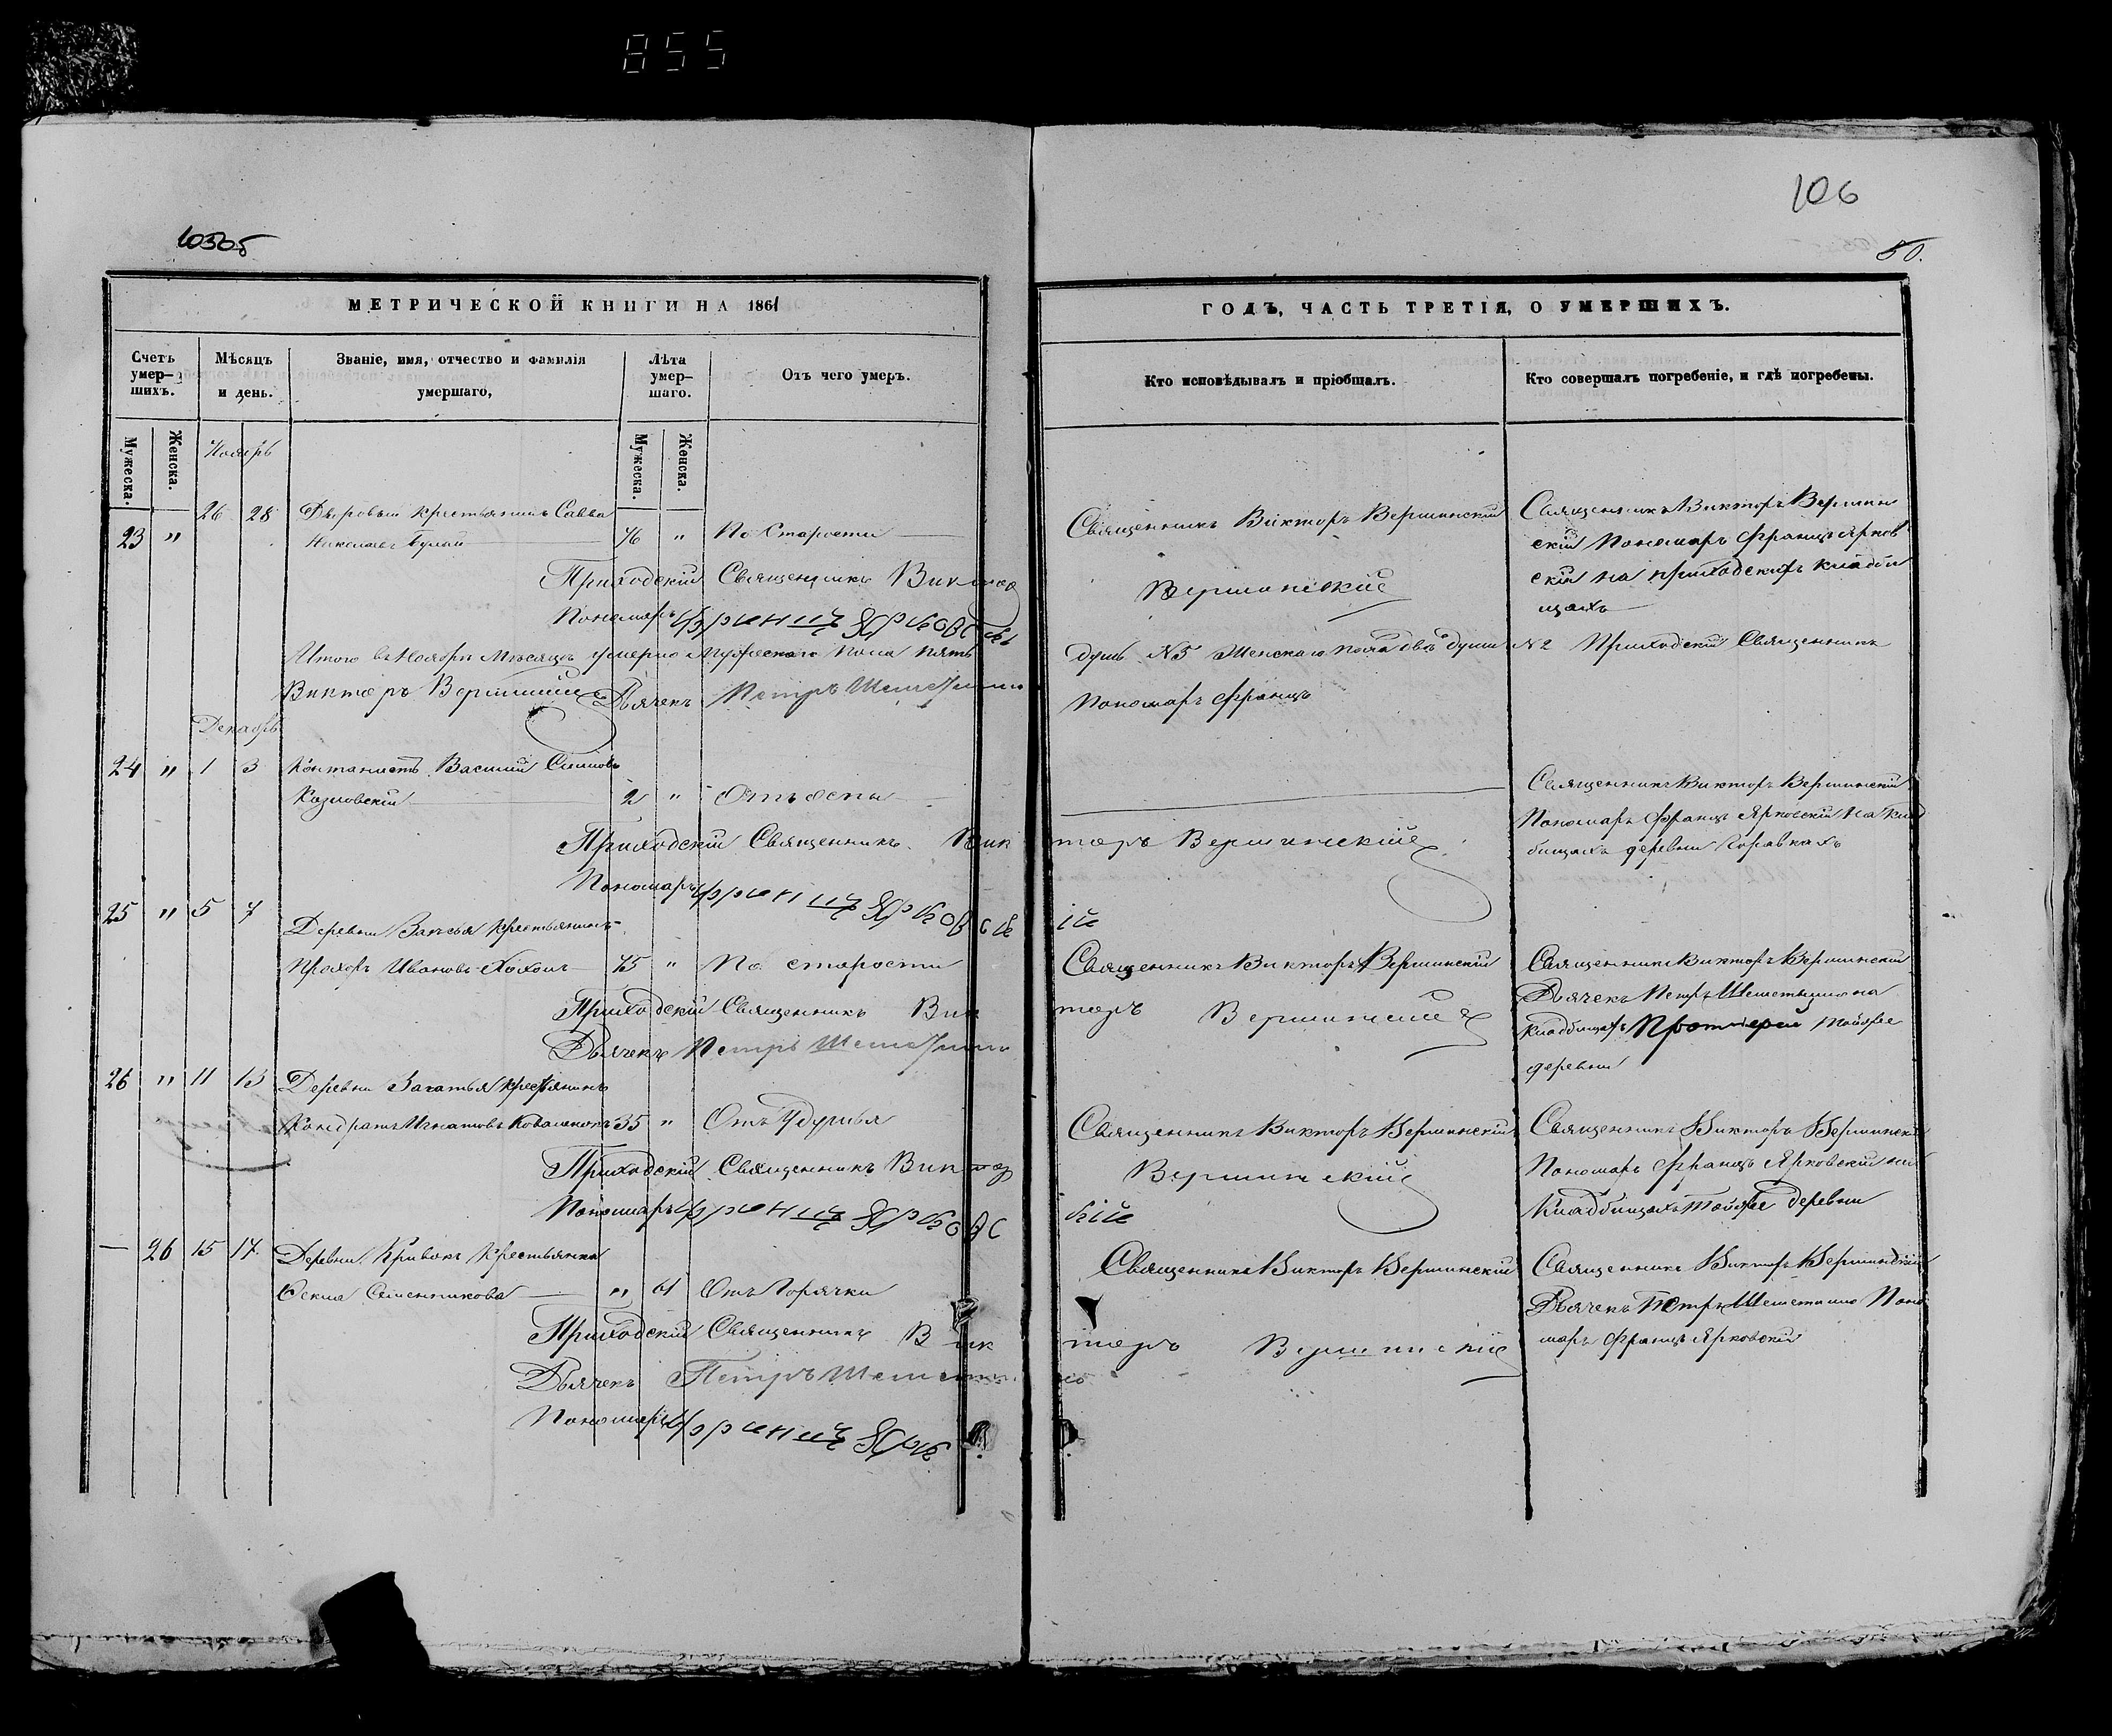 855
106
103об
50.
МЕТРИЧЕСКОЙ КНИГИ НА 1861
ГОДЪ, ЧАСТЬ ТРЕТІЯ, О УМЕРШИХЪ.
Счетъ умер-шихъ.
Мѣсяцъ и день.
Званіе, имя, отчество и фамилія умершаго,
Лѣта умер-шаго.
Отъ чего умеръ.
Кто исповѣдывалъ и пріобщалъ.
Кто совершалъ погребеніе, и гдѣ погребены.
Мужеска.
Женска.
Мужеска.
Женска.
Ноябрь
26 28 Дворовый крестьянинъ Савва
23 " Николаевъ 76 " По Старости
Священникъ Викторъ Вершинскій
Священникъ Викторъ Вершин
скій Пономарь Францъ Ярков
скій на приходскихъ кладби
щахъ
Приходскій Священникъ Виктор
Вершинскій
Пономарь Францъ Ярковскі
Итого въ Ноябрѣ Мѣсяцѣ умерло Мужескаго пола пять
душъ №5 Женскаго пола двѣ души №2 Приходскій Священникъ
Викторъ Вершинскій Дьячекъ Петръ
Пономарь Францъ
Декабрь
24 " 1 3 Кантонистъ Василій
Козловскій 2 " Отъ оспы
Священникъ Викторъ Вершинскій
Пономарь Францъ Ярковскій на клад
бищахъ деревни
Приходскій Священникъ Вик
торъ Вершинскій
Пономарь Францъ Ярковск
ій
25 " 5 7
Деревни крестьянинъ
Прохоръ Ивановъ Хохолъ 75 " По старости
Священникъ Викторъ Вершинскій
Священникъ Викторъ Вершинскій
Дьячекъ Петръ на
кладбищахъ тойже
деревни
Приходскій Священникъ Вик
торъ Вершинскій
Дьячекъ Петръ
26 " 11 13 Деревни крестьянинъ
Кондратъ Игнатовъ 35 " Отъ Удушья
Священникъ Викторъ Вершинскій
Священникъ Викторъ Вершинскі
Пономарь Францъ Ярковскій на
Кладбищахъ тойже деревни
Приходскій Священникъ Виктор
Вершинскій
Пономарь Францъ Ярковс
кій
— 26 15 17 Деревни крестьянка
" 61 Отъ Горячки
Священникъ Викторъ Вершинскій
Священникъ Викторъ Вершинскій
Дьячекъ Петръ Поно
марь Францъ Ярковскій
Приходскій Священникъ Вик
торъ Вершинскій
Дьячекъ Петръ
Пономарь Францъ Ярк